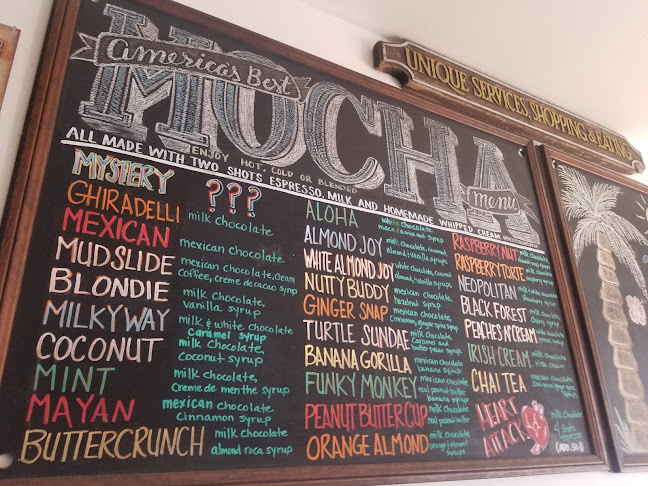 America's Best
MOCHA
menu
ENJOY HOT, COLD OR BLENDED
ALL MADE WITH TWO SHOTS ESPRESSO, MILK AND HOMEMADE WHIPPED CREAM
UNIQUE SERVICES, SHOPPING & EATING
MYSTERY ???
GHIRADELLI milk chocolate
MEXICAN mexican chocolate
MUDSLIDE mexican chocolate, cream
coffee, creme de cacao syrup
BLONDIE milk chocolate,
vanilla syrup
MILKYWAY milk & white chocolate
caramel syrup
COCONUT milk chocolate,
coconut syrup
MINT milk chocolate,
Creme de menthe syrup
MAYAN mexican chocolate
Cinnamon syrup
BUTTERCRUNCH milk chocolate
almond roca syrup
ALOHA white chocolate
macadamia nut syrup
ALMOND JOY milk chocolate, coconut,
almond, vanilla syrups
WHITE ALMOND JOY white chocolate, coconut,
almond, vanilla syrups
NUTTY BUDDY mexican chocolate,
hazelnut syrup
GINGER SNAP mexican chocolate,
Cinnamon, ginger spice syrup
TURTLE SUNDAE milk chocolate,
Caramel and
butter pecan syrups
BANANA GORILLA mexican chocolate
banana syrup
FUNKY MONKEY mexican chocolate
real peanut butter
banana syrup
PEANUT BUTTER CUP milk chocolate
real peanut butter
ORANGE ALMOND milk chocolate
orange & almond
syrups
RASPBERRY NUT milk chocolate
RASPBERRY TORTE milk chocolate
raspberry syrup
NEOPOLITAN milk & white chocolate
strawberry syrup
BLACK FOREST milk chocolate
cherry syrup
PEACHES N' CREAM
IRISH CREAM milk chocolate
irish cream
CHAI TEA
HEART
ATTACK
milk chocolate
4 shots
espresso